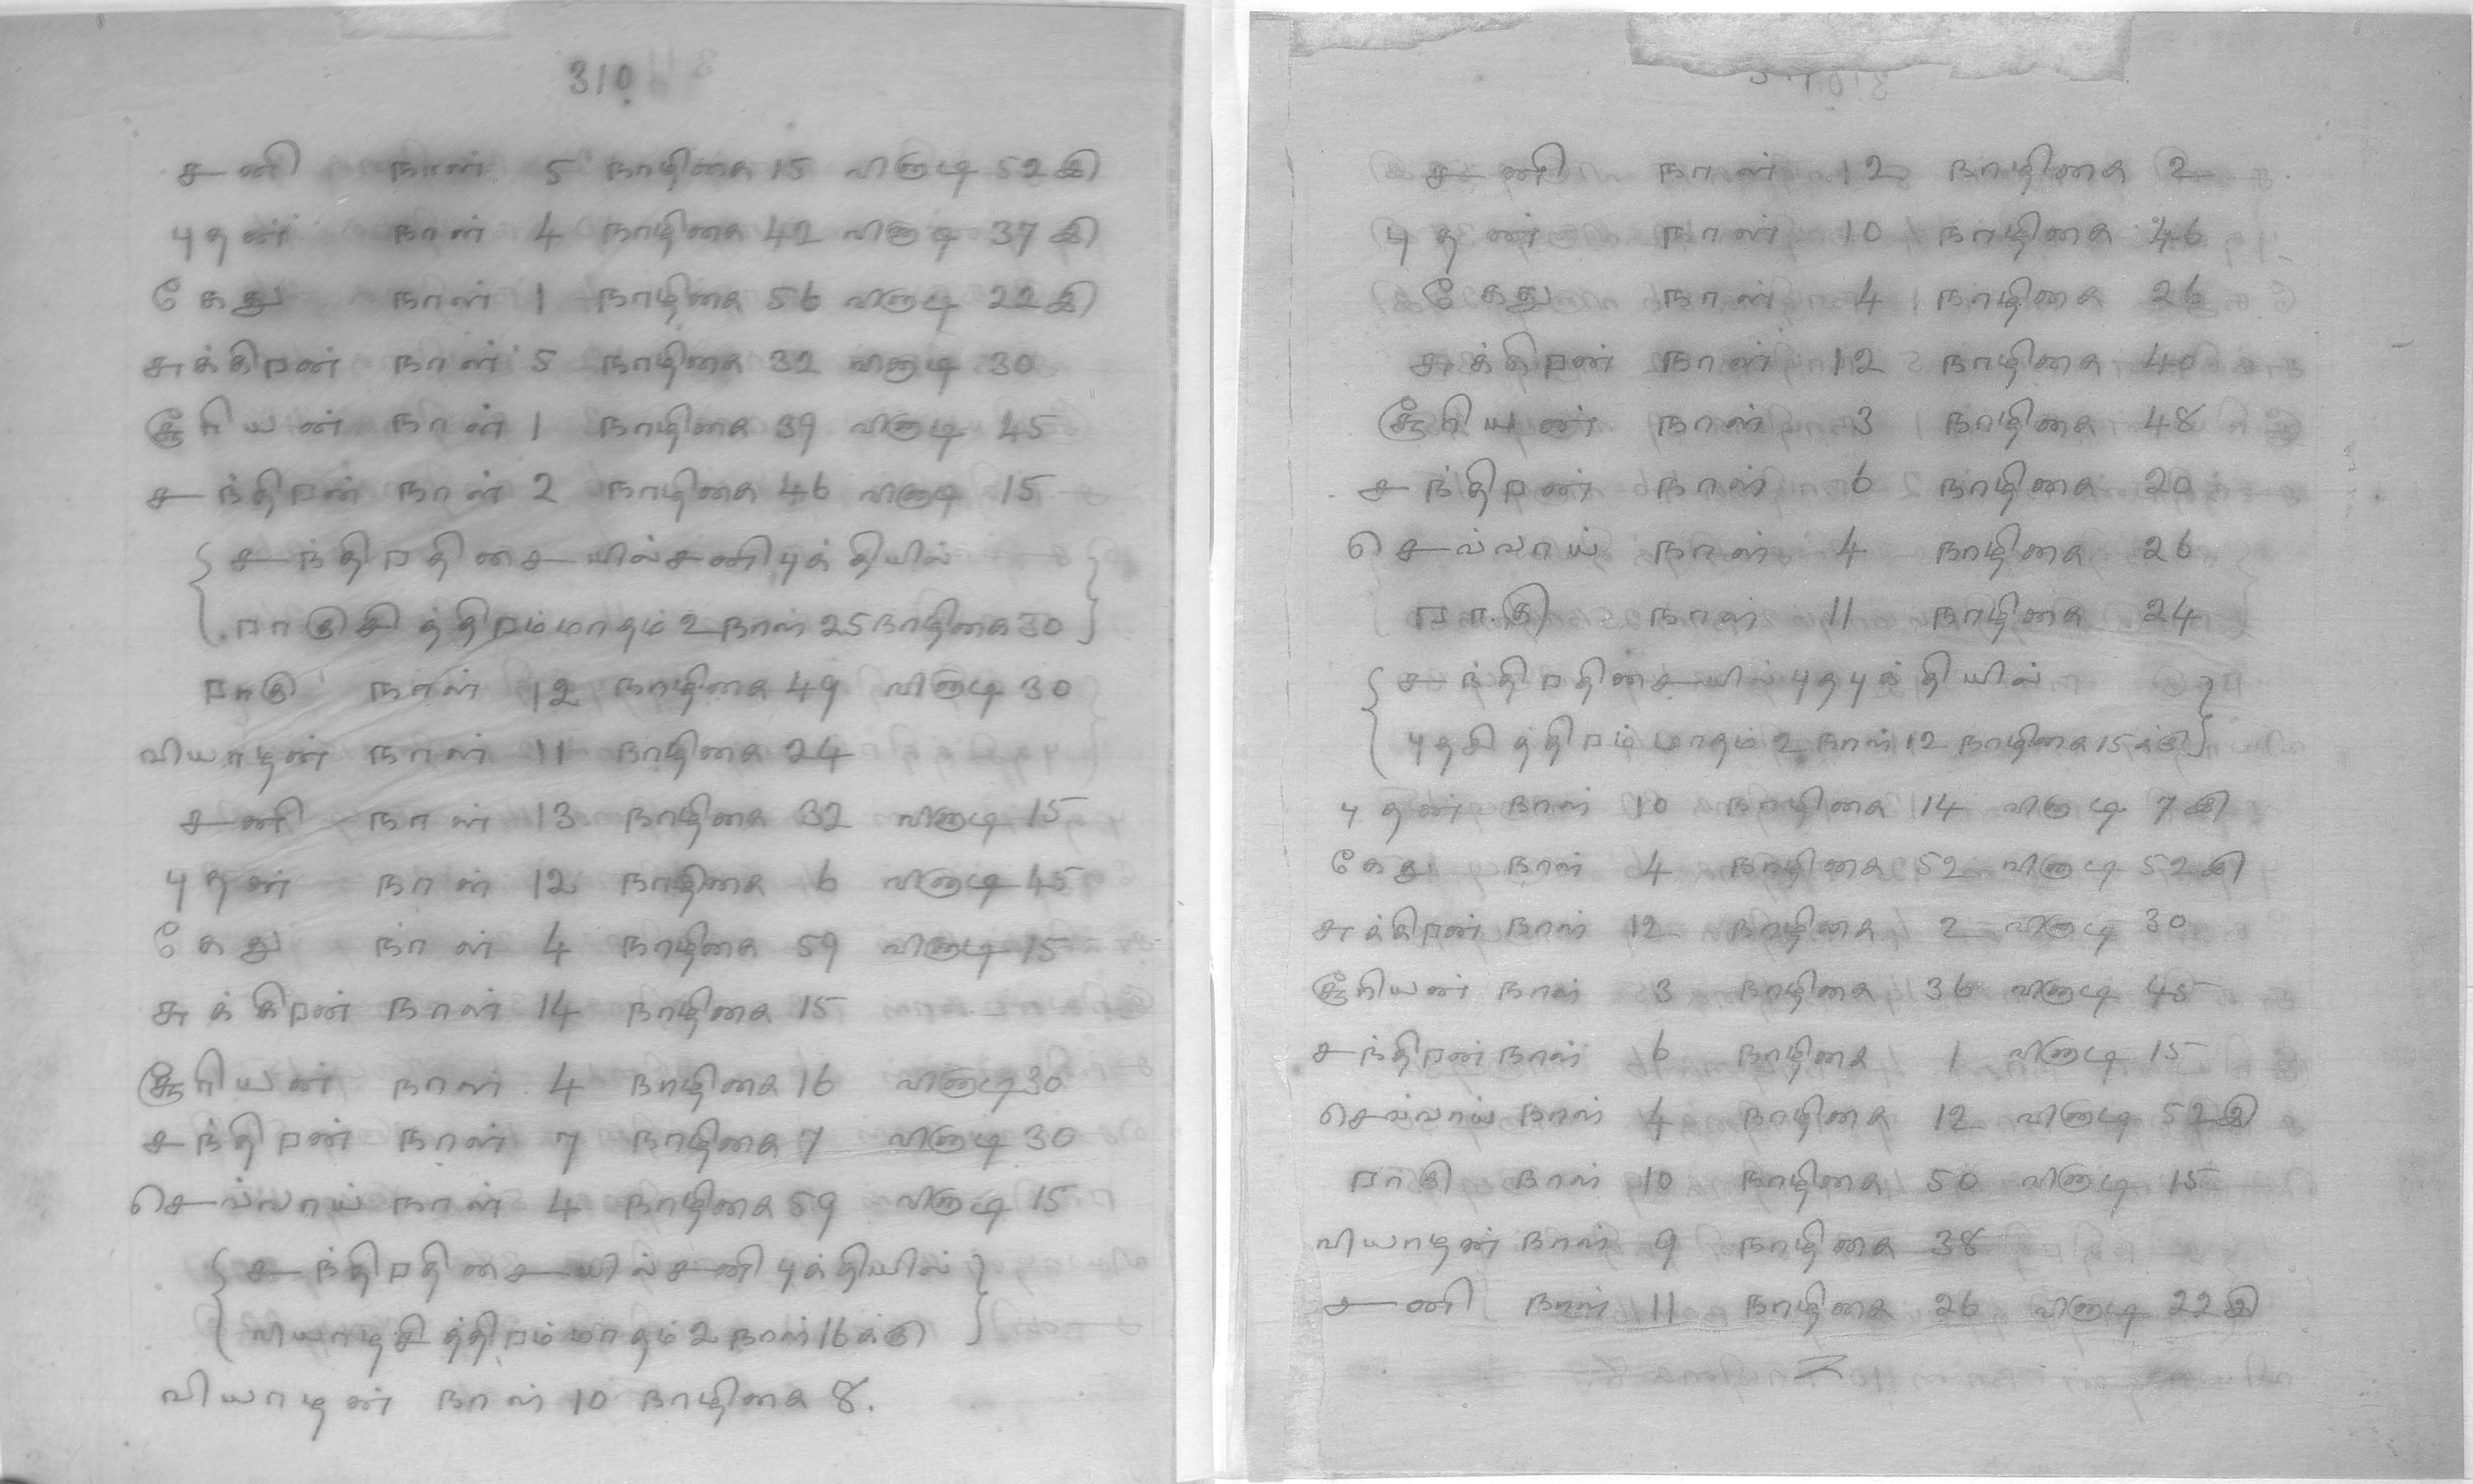 310
சனி நாள் 5 நாழிகை 15 விநாடி 52இ
புதன் நாள் 4 நாழிகை 42 விநாடி 37இ
கேது நாள் 1 நாழிகை 56 விநாடி 22இ
சுக்கிறன் நாள் 5 நாழிகை 32 விநாடி 30
சூரியன் நாள் 1 நாழிகை 39 விநாடி 45
சந்திறன் நாள் 2 நாழிகை 46 விநாடி 15
சந்திறதிசையில்சனிபுக்தியில்
றாகுசித்திறம்மாதம் 2 நாள் 25 நாழிகை 30
றாகு நாள் 12 நாழிகை 49 விநாடி 30
வியாழன் நாள் 11 நாழிகை 24
சனி நாள் 13 நாழிகை 32 விநாடி 15
புதன் நாள் 12 நாழிகை 6 விநாடி 45
கேது நாள் 4 நாழிகை 59 விநாடி 15
சுக்கிறன் நாள் 14 நாழிகை 15
சூரியன் நாள் 4 நாழிகை 16 விநாடி 30
சந்திறன் நாள் 7 நாழிகை 7 விநாடி 30
செவ்வாய் நாள் 4 நாழிகை 59 விநாடி 15
சந்திறதிசையில்சனிபுக்தியில்
வியாழசித்திறம்மாதம் 2 நாள் 16க்கு
வியாழன் நாள் 10 நாழிகை 8.
சனி நாள் 12 நாழிகை 2
புதன் நாள் 10 நாழிகை 46
கேது நாள் 4 நாழிகை 26
சுக்கிறன் நாள் 12 நாழிகை 40
சூரியன் நாள் 3 நாழிகை 48
சந்திறன் நாள் 6 நாழிகை 20
செவ்வாய் நாள் 4 நாழிகை 26
றாகு நாள் 11 நாழிகை 24
சந்திறதிசையில்புதபுக்தியில்
புதசித்திறம் மாதம் 2 நாள் 12 நாழிகை 15க்கு
புதன் நாள் 10 நாழிகை 14 விநாடி 7இ
கேது நாள் 4 நாழிகை 52 விநாடி 52இ
சுக்கிறன் நாள் 12 நாழிகை 2 விநாடி 30
சூரியன் நாள் 3 நாழிகை 36 விநாடி 45
சந்திறன் நாள் 6 நாழிகை 1 விநாடி 15
செவ்வாய் நாள் 4 நாழிகை 12 விநாடி 52இ
றாகு நாள் 10 நாழிகை 50 விநாடி 15
வியாழன் நாள் 9 நாழிகை 38
சனி நாள் 11 நாழிகை 26 விநாடி 22இ